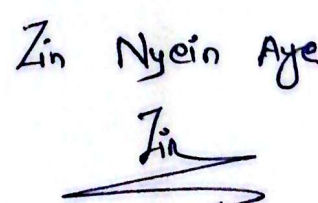 Zin Nyein Aye
Zin